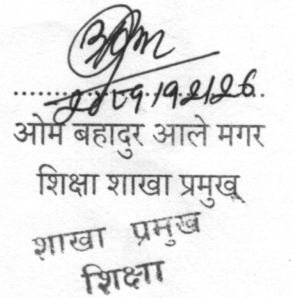 ओम बहादुर आले मगर
शिक्षा शाखा प्रमुख
शाखा प्रमुख
शिक्षा